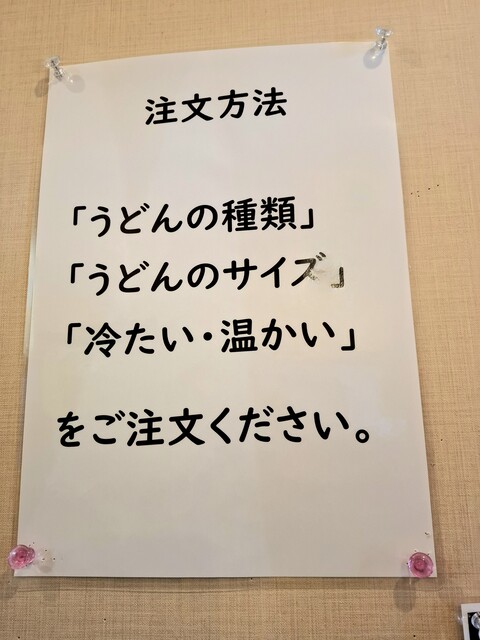 注文方法
「うどんの種類」
「うどんのサイズ」
「冷たい・温かい」
をご注文ください。